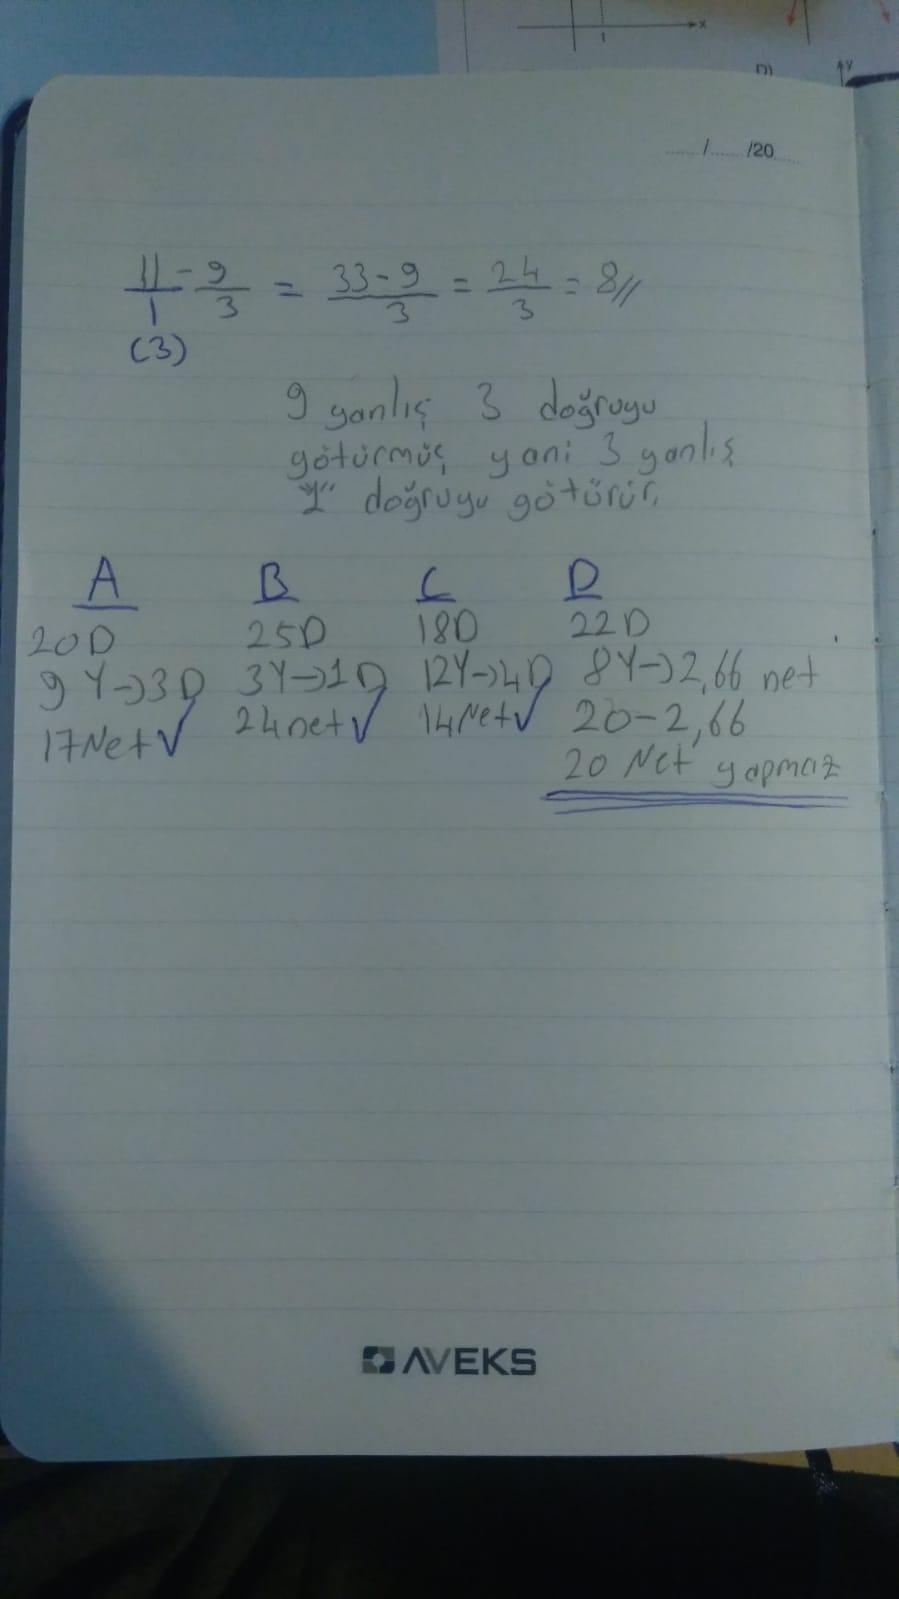 x
1
D)
y
/ /20
11/1 - 9/3 = 33-9/3 = 24/3 = 8//
(3)
9 yanlış 3 doğruyu
götürmüş yani 3 yanlış
"1" doğruyu götürür.
A B C D
20D 25D 18D 22D
9Y→3D 3Y→1D 12Y→4D 8Y→2,66 net
17Net✓ 24net✓ 14Net✓ 20-2,66
20 Net yapmaz
AVEKS